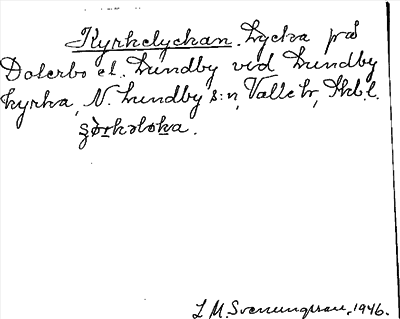 Kyrkelyckan. Lycka på
Dolerbo el. Lundby vid Lundby
kyrka, N. Lundby s:n, Valle hr, Skb.l.
L M. Svenungsson, 1946.